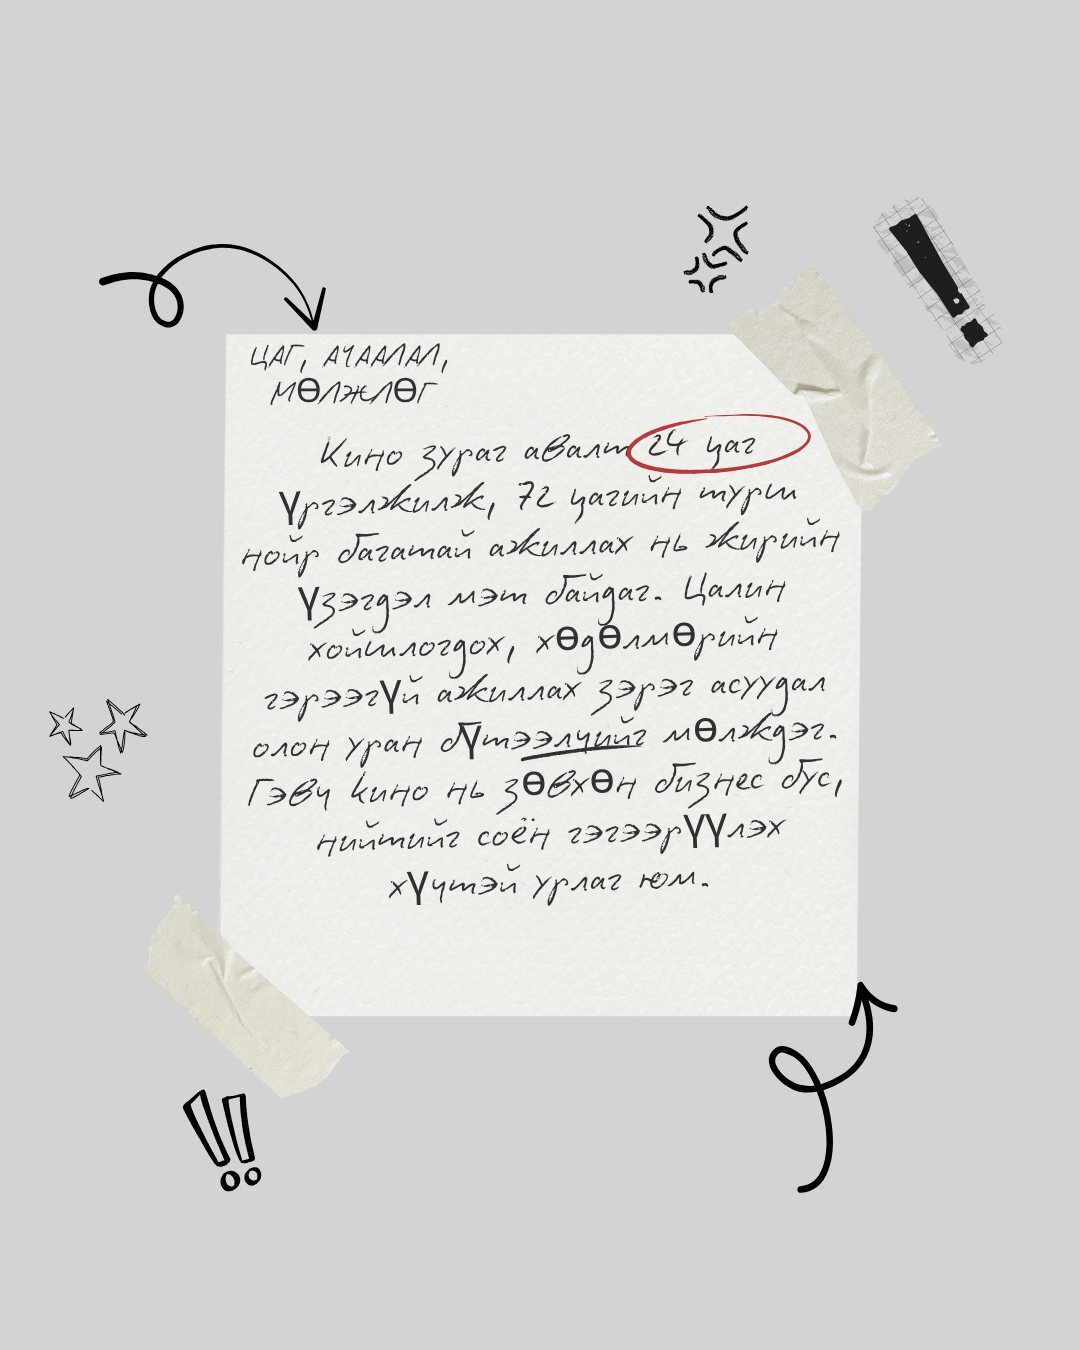 ЦАГ, АЧААЛАЛ,
МӨЛЖЛӨГ
Кино зураг авалт 24 цаг
Үргэлжилж, 72 цагийн турш
нойр багатай ажиллах нь жирийн
Үзэгдэл мэт байдаг. Цалин
хойшлогдох, хөдөлмөрийн
гэрээгҮй ажиллах зэрэг асуудал
олон уран бҮтээлчийг мөлждэг.
Гэвч кино нь зөвхөн бизнес бус,
нийтийг соён гэгээрҮҮлэх
хҮчтэй урлаг юм.